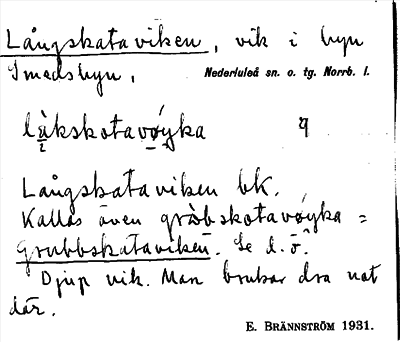 Långskataviken, vik i byn
Smedsbyn, Nederluleå sn. o. tg. Norrb. l.
làkskotavǿyka
Långskataviken bk.
Kallas även gràbskotavǿyka =
Grubbskataviken. Se d. o.
Djup vik. Man brukar dra not
där.
E. BRÄNNSTRÖM 1931.